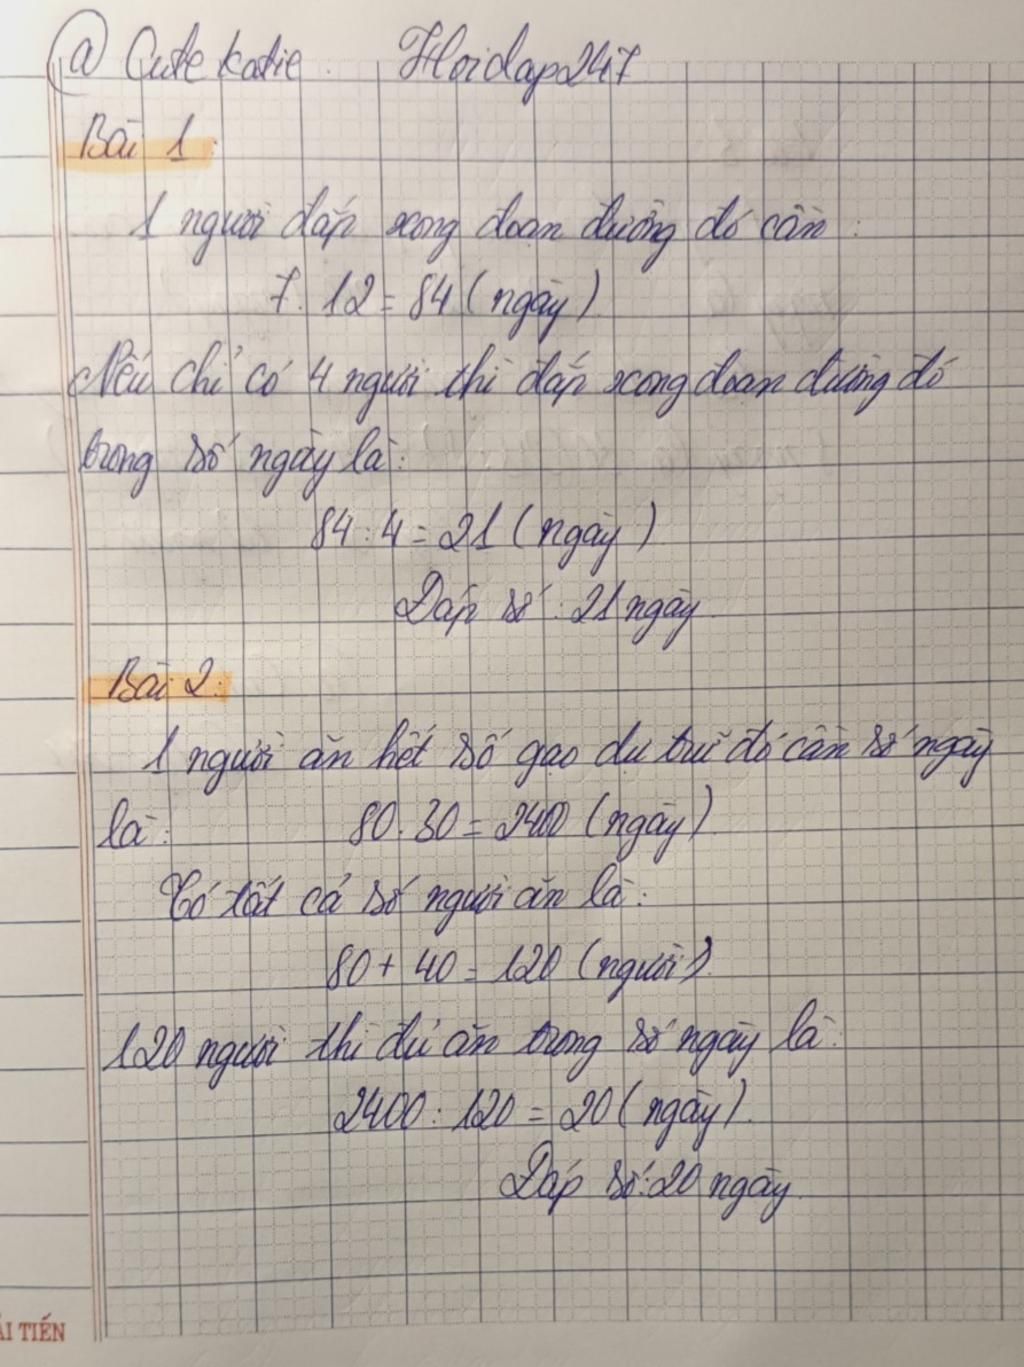 @ Cute katie. Hoidap247
Bài 1:
1 người đắp xong đoạn đường đó cần:
7. 12 = 84 (ngày)
Nếu chỉ có 4 người thì đắp xong đoạn đường đó
trong số ngày là:
84 : 4 = 21 (ngày)
Đáp số : 21 ngày
Bài 2:
1 người ăn hết số gạo dự trữ đó cần số ngày
là: 80. 30 = 2400 (ngày)
Có tất cả số người ăn là:
80 + 40 = 120 (người)
120 người thì đủ ăn trong số ngày là:
2400 : 120 = 20 (ngày).
Đáp số: 20 ngày.
ẢI TIẾN